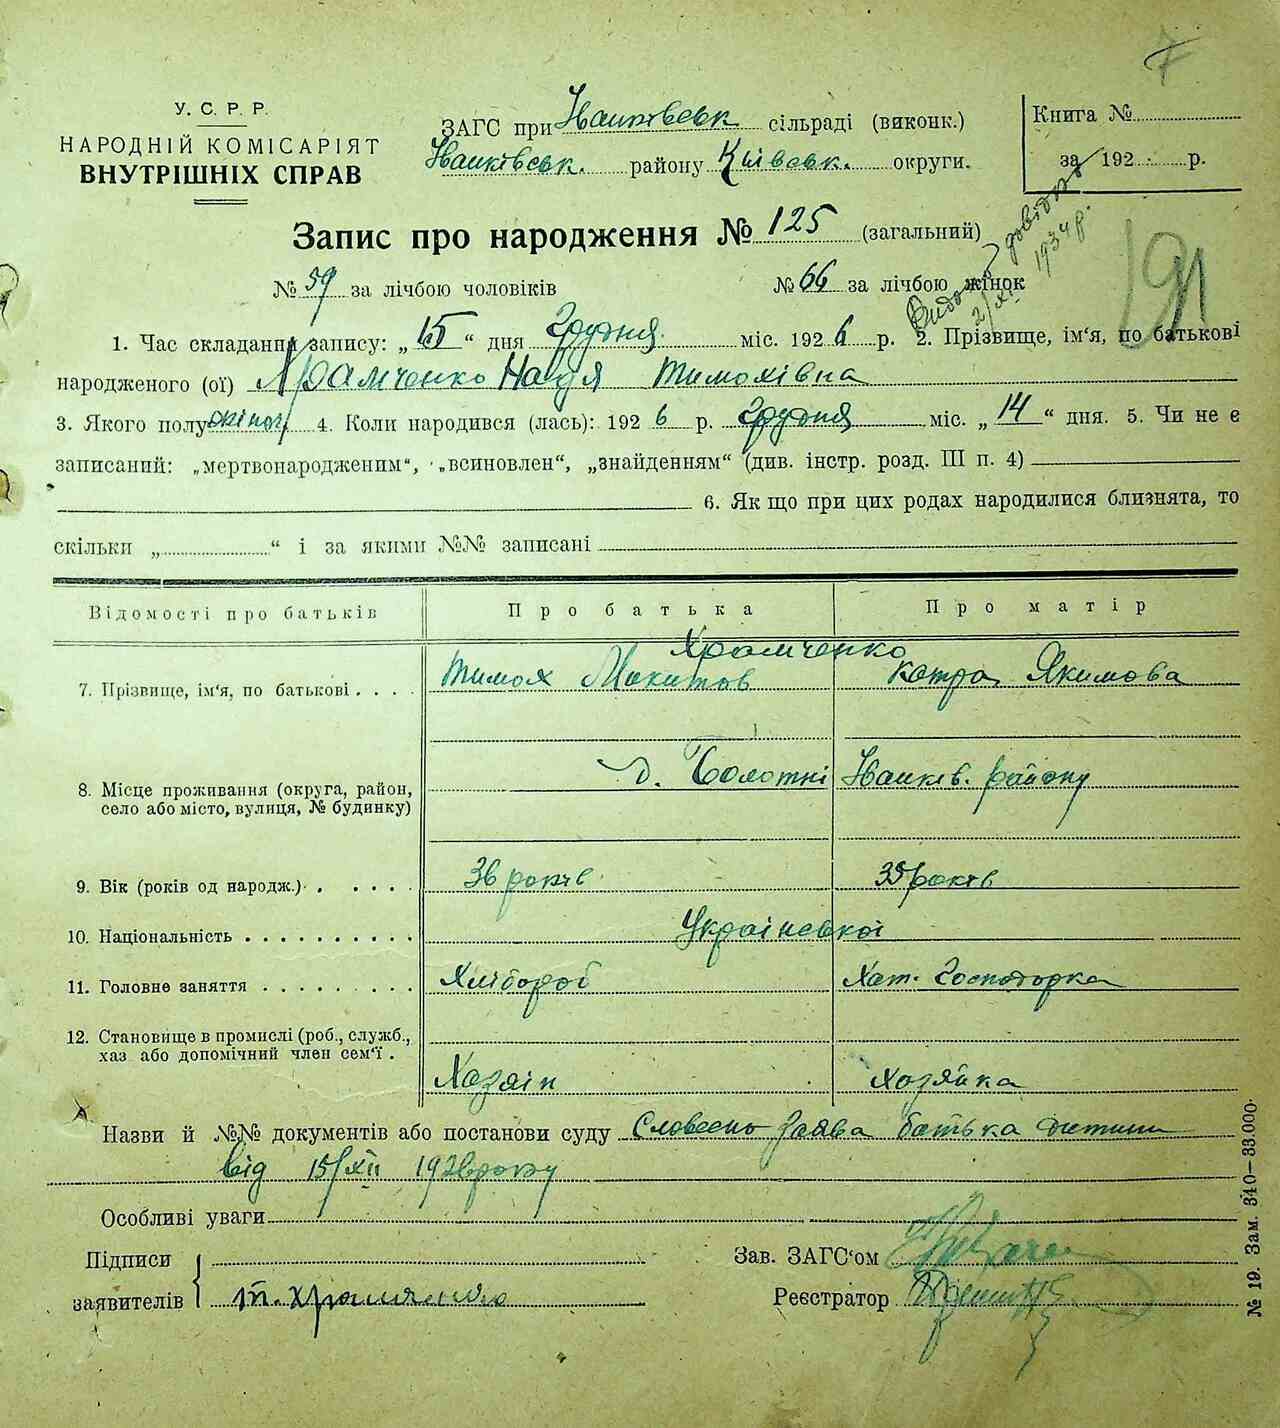 7
У. С. Р. Р.
НАРОДНІЙ КОМІСАРІЯТ
ВНУТРІШНІХ СПРАВ
ЗАГС при Іванківськ сільраді (виконк.)
Іванківськ. району Київськ. округи.
Книга №
за 192 р.
Запис про народження № 125 (загальний)
№ 59 за лічбою чоловіків № 66 за лічбою жінок
1934 р.
191
1. Час складання запису: „ 15 “ дня Грудня міс. 192 6 р. 2. Прізвище, ім'я, по батькові
народженого (ої) Храмченко Надія Тимохівна
3. Якого полу жіноч. 4. Коли народився (лась): 192 6 р. Грудня міс. „ 14 “ дня. 5. Чи не є
записаний: „мертвонародженим“, „всиновлен“, „знайденням“ (див. інстр. розд. III п. 4)
6. Як що при цих родах народилися близнята, то
скільки „ “ і за якими №№ записані
Відомості про батьків Про батька Про матір
Храмченко
7. Прізвище, ім'я, по батькові Тимох Микитов Катря Якимова
8. Місце проживання (округа, район, д. Болотні Іванків. району
село або місто, вулиця, № будинку)
9. Вік (років од народж.) 36 років 35 років
10. Національність Української
11. Головне заняття Хлібороб Хат. Господорка
12. Становище в промислі (роб., служб.,
хаз або допомічний член сем'ї
Хазяін Хозяйка
Назви й №№ документів або постанови суду Словесно заява батька дитини
від 15/XII 1926 року
Особливі уваги
Підписи
заявителів т. храмченко
Зав. ЗАГС'ом
Реєстратор
№ 19. Зам. 340—33.000